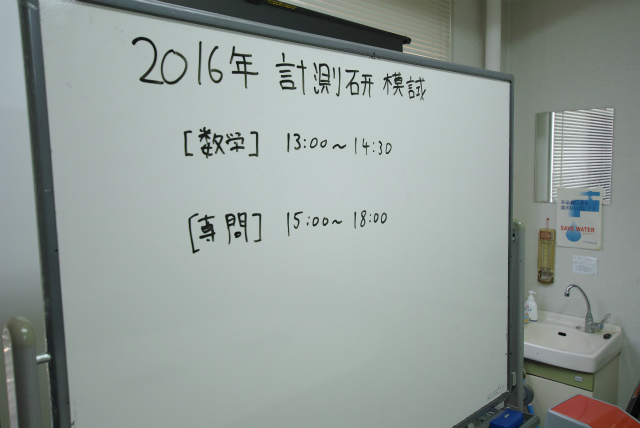 2016年 計測研 模試
[数学] 13:00~14:30
[専門] 15:00~18:00
SAVE WATER